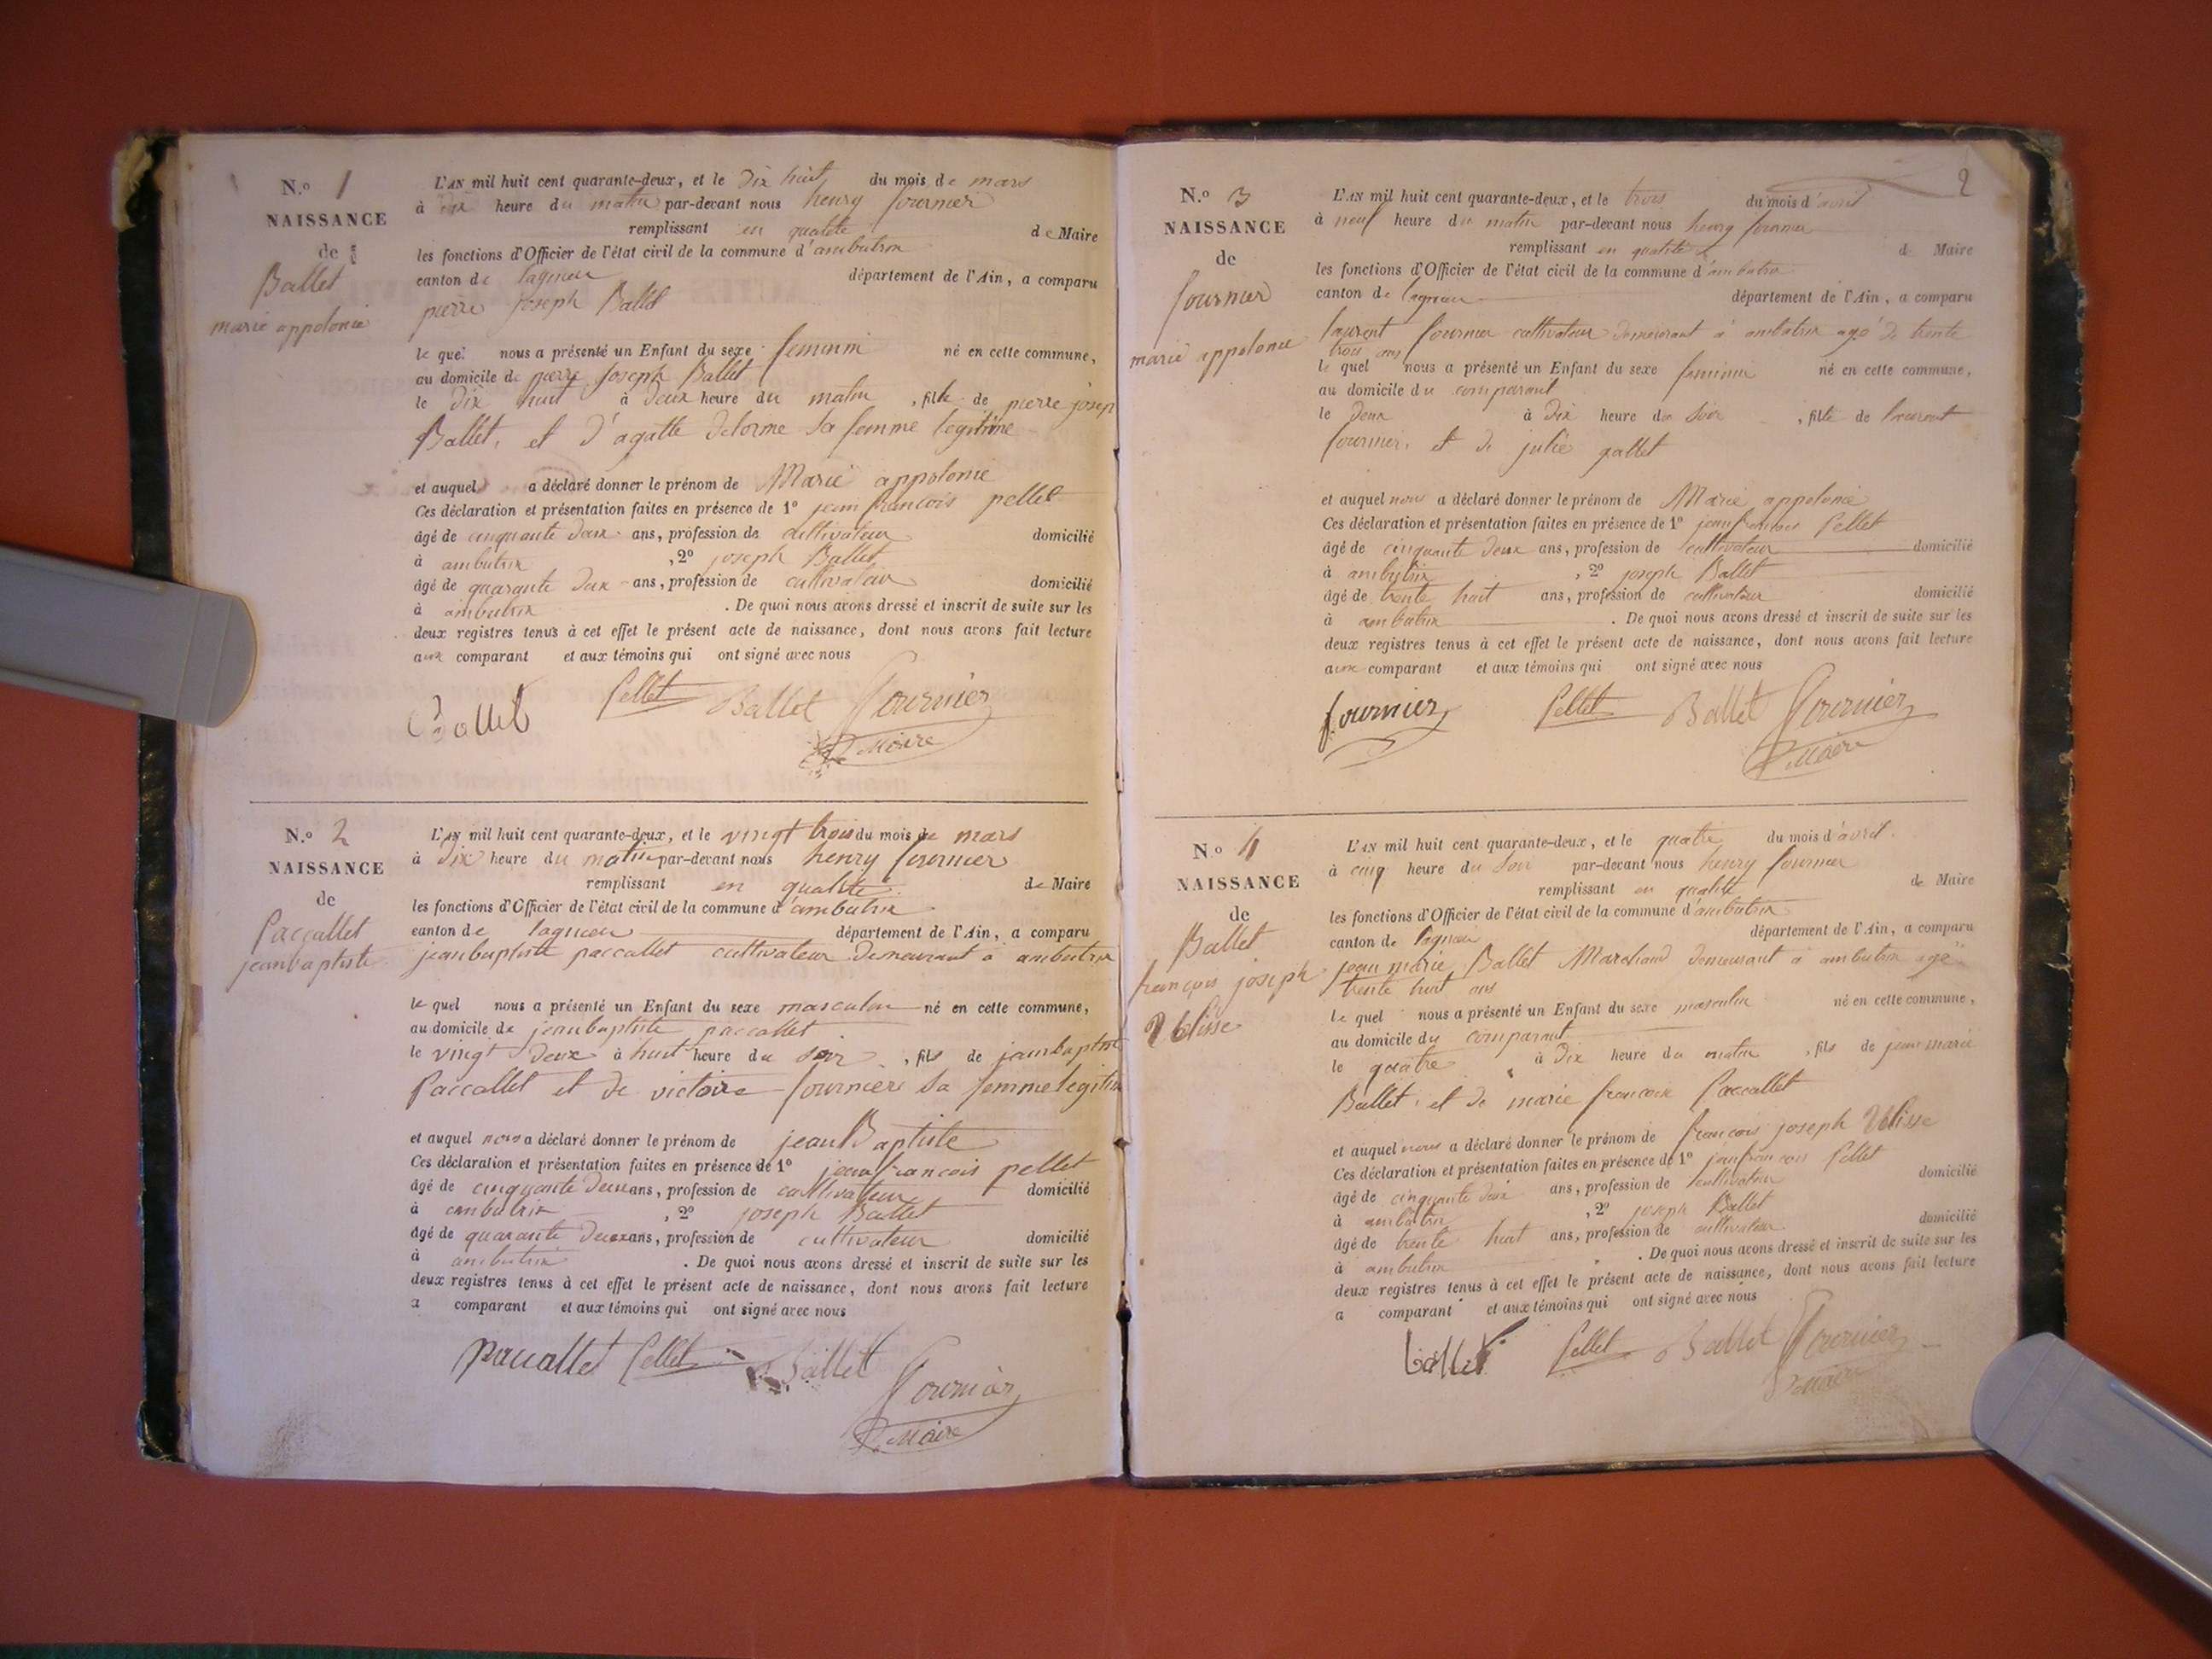 N.º 1
NAISSANCE
de
Ballet
marie appolonie
L'AN mil huit cent quarante-deux, et le dix huit du mois de mars
à dix heure du matin par-devant nous henry fournier
remplissant en qualité de Maire
les fonctions d'Officier de l'état civil de la commune d'ambutrix
canton de lagnieu département de l'Ain, a comparu
pierre joseph Ballet
le quel nous a présenté un Enfant du sexe feminin né en cette commune,
au domicile de pierre joseph Ballet
le dix huit à deux heure du matin, fille de pierre josep
Ballet, et d'agatte delorme sa femme legitime
et auquel a déclaré donner le prénom de Marie appolonie
Ces déclaration et présentation faites en présence de 1º jean francois pellet
âgé de cinquante deux ans, profession de cultivateur domicilié
à ambutrix, 2º joseph Ballet
âgé de quarante deux ans, profession de cultivateur domicilié
à ambutrix. De quoi nous avons dressé et inscrit de suite sur les
deux registres tenus à cet effet le présent acte de naissance, dont nous avons fait lecture
aux comparant et aux témoins qui ont signé avec nous
Ballet Pellet Ballet Fournier
Maire
N.º 2
NAISSANCE
de
Paccallet
jeanbaptiste
L'AN mil huit cent quarante-deux, et le vingt trois du mois de mars
à dix heure du matin par-devant nous henry fournier
remplissant en qualité de Maire
les fonctions d'Officier de l'état civil de la commune d'ambutrix
canton de lagnieu département de l'Ain, a comparu
jeanbaptiste paccallet cultivateur demeurant à ambutrix
le quel nous a présenté un Enfant du sexe masculin né en cette commune,
au domicile de jeanbaptiste paccallet
le vingt deux à huit heure du soir, fils de jeanbaptiste
Paccallet et de victoire fournier sa femme legitim
et auquel nous a déclaré donner le prénom de jean Baptiste
Ces déclaration et présentation faites en présence de 1º jean francois pellet
âgé de cinquante deux ans, profession de cultivateur domicilié
à ambutrix, 2º joseph Ballet
âgé de quarante deux ans, profession de cultivateur domicilié
à ambutrix. De quoi nous avons dressé et inscrit de suite sur les
deux registres tenus à cet effet le présent acte de naissance, dont nous avons fait lecture
a comparant et aux témoins qui ont signé avec nous
paccallet Pellet Ballet Fournier
Maire
2
N.º 3
NAISSANCE
de
fournier
marie appolonie
L'AN mil huit cent quarante-deux, et le trois du mois d'avril
à neuf heure du matin par-devant nous henry fournier
remplissant en qualité de Maire
les fonctions d'Officier de l'état civil de la commune d'ambutrix
canton de lagnieu département de l'Ain, a comparu
laurent fournier cultivateur demeurant à ambutrix agé de trente
trois ans
le quel nous a présenté un Enfant du sexe feminin né en cette commune,
au domicile du comparant
le deux à dix heure du soir, fille de laurent
fournier, et de julie gallet
et auquel nous a déclaré donner le prénom de Marie appolonie
Ces déclaration et présentation faites en présence de 1º jean francois Pellet
âgé de cinquante deux ans, profession de cultivateur domicilié
à ambutrix, 2º joseph Ballet
âgé de trente huit ans, profession de cultivateur domicilié
à ambutrix. De quoi nous avons dressé et inscrit de suite sur les
deux registres tenus à cet effet le présent acte de naissance, dont nous avons fait lecture
aux comparant et aux témoins qui ont signé avec nous
fournier Pellet Ballet Fournier
Maire
N.º 4
NAISSANCE
de
Ballet
francois joseph
Ulisse
L'AN mil huit cent quarante-deux, et le quatre du mois d'avril
à cinq heure du soir par-devant nous henry fournier
remplissant en qualité de Maire
les fonctions d'Officier de l'état civil de la commune d'ambutrix
canton de lagnieu département de l'Ain, a comparu
jean marie Ballet Marchand demeurant à ambutrix agé
trente huit ans
le quel nous a présenté un Enfant du sexe masculin né en cette commune,
au domicile du comparant
le quatre à dix heure du matin, fils de jean marie
Ballet, et de marie francoise Paccallet
et auquel nous a déclaré donner le prénom de francois joseph Ulisse
Ces déclaration et présentation faites en présence de 1º jean francois Pellet
âgé de cinquante deux ans, profession de cultivateur domicilié
à ambutrix, 2º joseph Ballet
âgé de trente huit ans, profession de cultivateur domicilié
à ambutrix. De quoi nous avons dressé et inscrit de suite sur les
deux registres tenus à cet effet le présent acte de naissance, dont nous avons fait lecture
a comparant et aux témoins qui ont signé avec nous
ballet Pellet Ballet Fournier
Maire